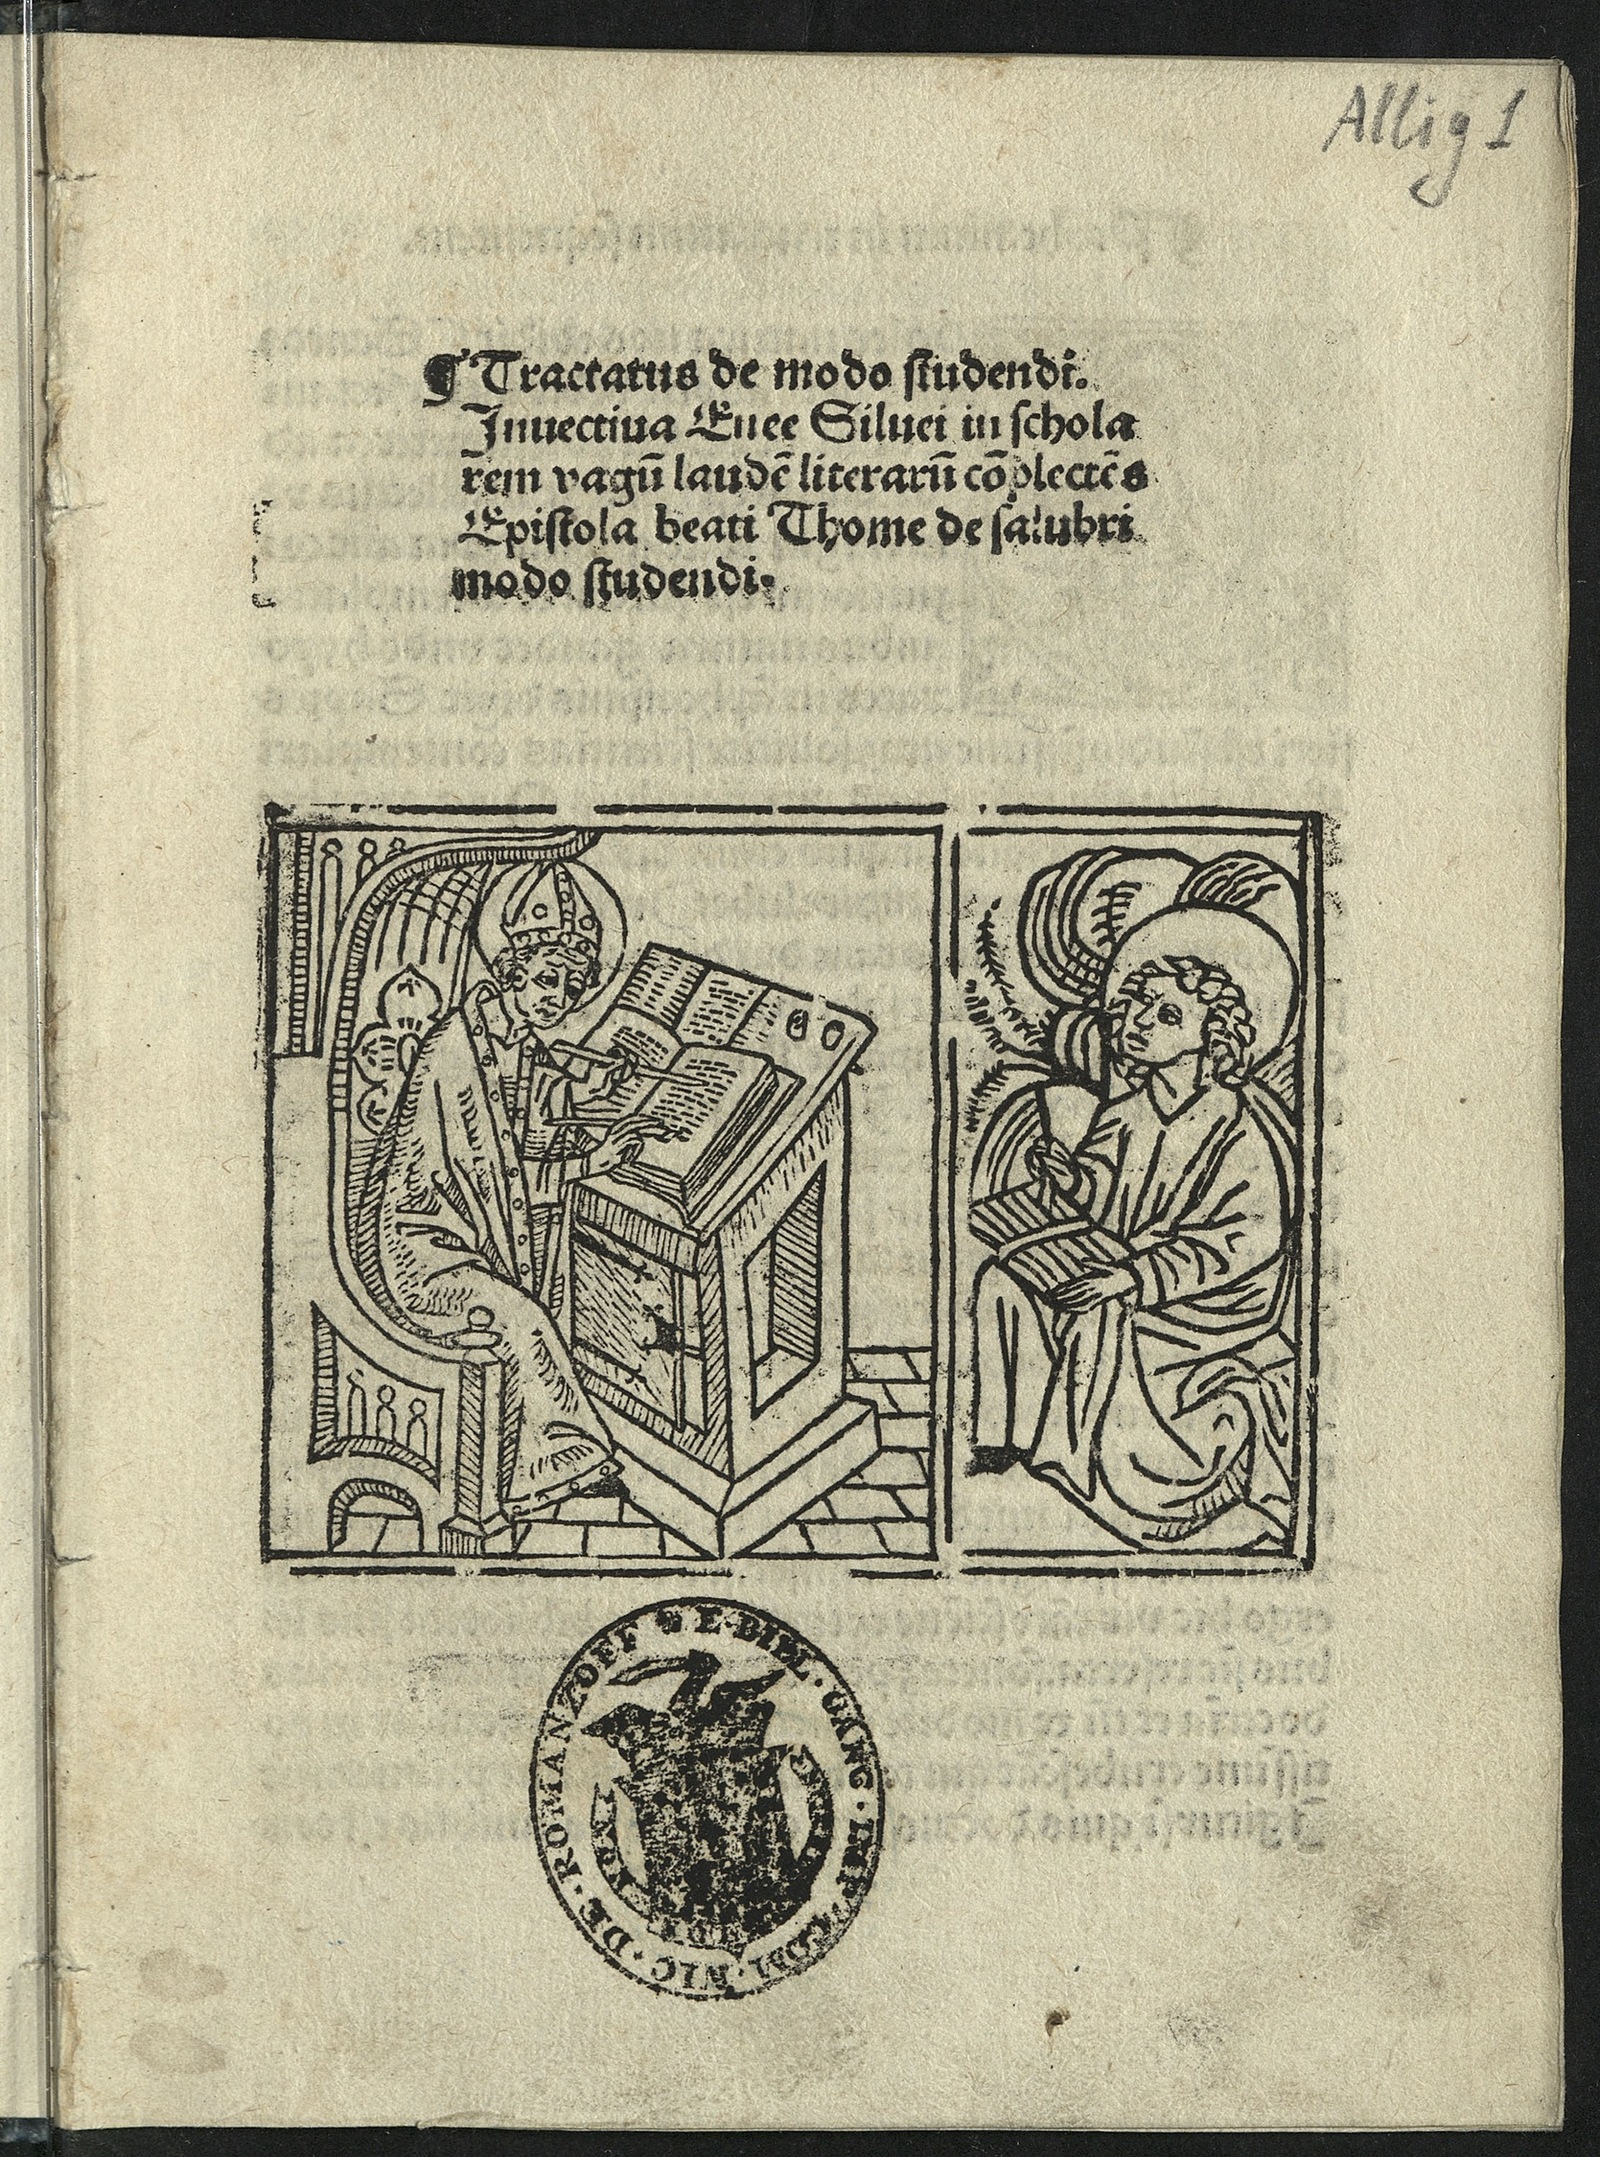 Allig 1
¶ Tractatus de modo studendi.
Inuectiua Enee Siluei in schola
rem vagū laudē literarū cōplectēs
Epistola beati Thome de salubri
modo studendi.
E·BIBL· COM·NIC·DE·ROMANZOFF